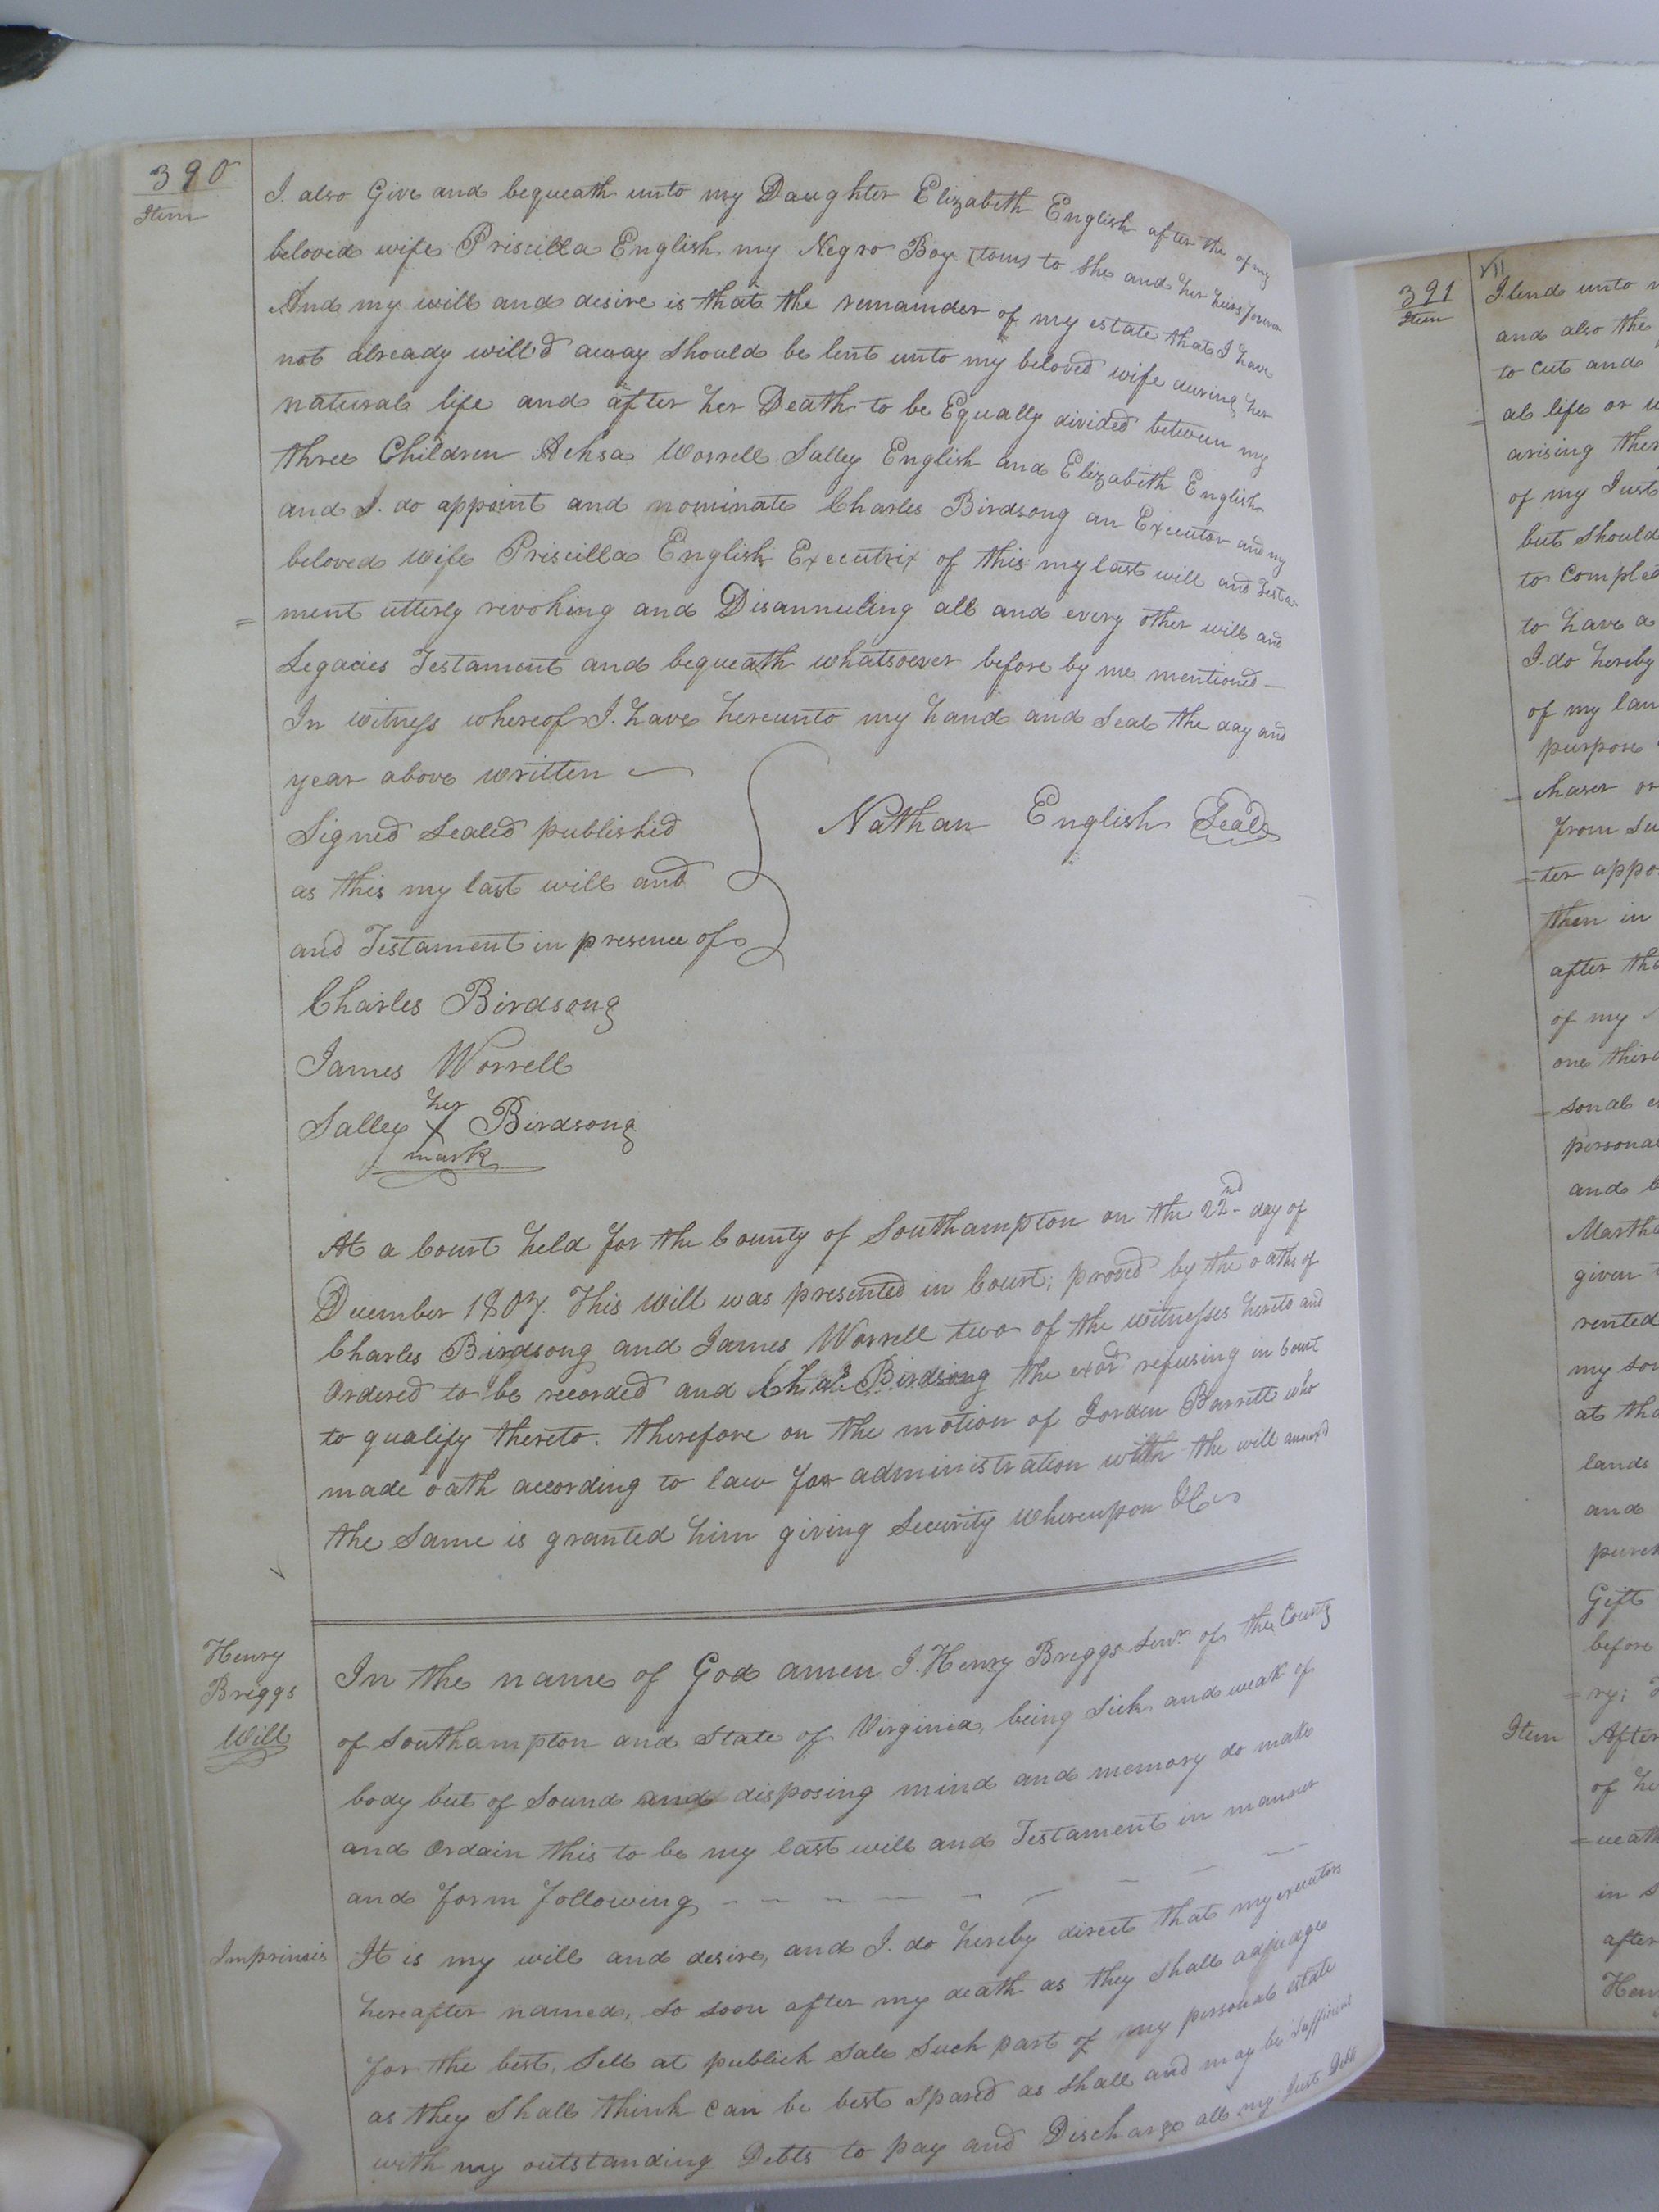 390
Item
I. also Give and bequeath unto my Daughter Elizabeth English after the of my
beloved wife Priscilla English my Negro Boy (tom) to she and her heirs forever
And my will and desire is that the remainder of my estate that I have
not already will'd away should be lent unto my beloved wife during her
natural life and after her Death to be Equally divided between my
three Children Achsa Worrell Salley English and Elizabeth English
and I. do appoint and nominate Charles Birdsong an Executor and my
beloved wife Priscilla English Executrix of this my last will and Testa-
= ment utterly revoking and Disannuling all and every other will and
Legacies Testament and bequeath whatsoever before by me mentioned —
In witness whereof I. have hereunto my hand and Seal the day and
year above written —
Signed Sealed published
as this my last will and
and Testament in presence of
Nathan English Seal
Charles Birdsong
James Worrell
her
Salley X Birdsong
mark
At a Court held for the County of Southampton on the 22nd day of
December 1807. This Will was presented in Court; proved by the oaths of
Charles Birdsong and James Worrell two of the witnesses hereto and
Ordered to be recorded and Chas Birdsong the exor refusing in Court
to qualify thereto. therefore on the motion of Jorden Barrett who
made oath according to law for administration with the will annex'd
the Same is granted him giving Security Whereupon &c
Henry
Briggs
Will
In the name of God amen I. Henry Briggs Senr. of the County
of Southampton and State of Virginia, being Sick and weak of
body but of Sound and disposing mind and memory do make
and Ordain this to be my last will and Testament in manner
and form following — — — — — — — — —
Imprimis
It is my will and desire, and I. do hereby direct that my executors
hereafter named, so soon after my death as they Shall adjudge
for the best, Sell at publick Sale Such part of my personal estate
as they Shall think can be best Spared as Shall and may be Sufficient
with my outstanding Debts to pay and Discharge all my Just Debts
391
Item
I lend unto
and also the
to cut and
= al life or
arising
of my Just
but should
to
to have a
I. do hereby
of my
purpose
= chaser or
from
= ter
then in
after the
of my
one third
= sonal
personal
and
Martha
given
rented
my son
at the
lands
and
Gift
before
= ry;
Item
After
of
=
in
after